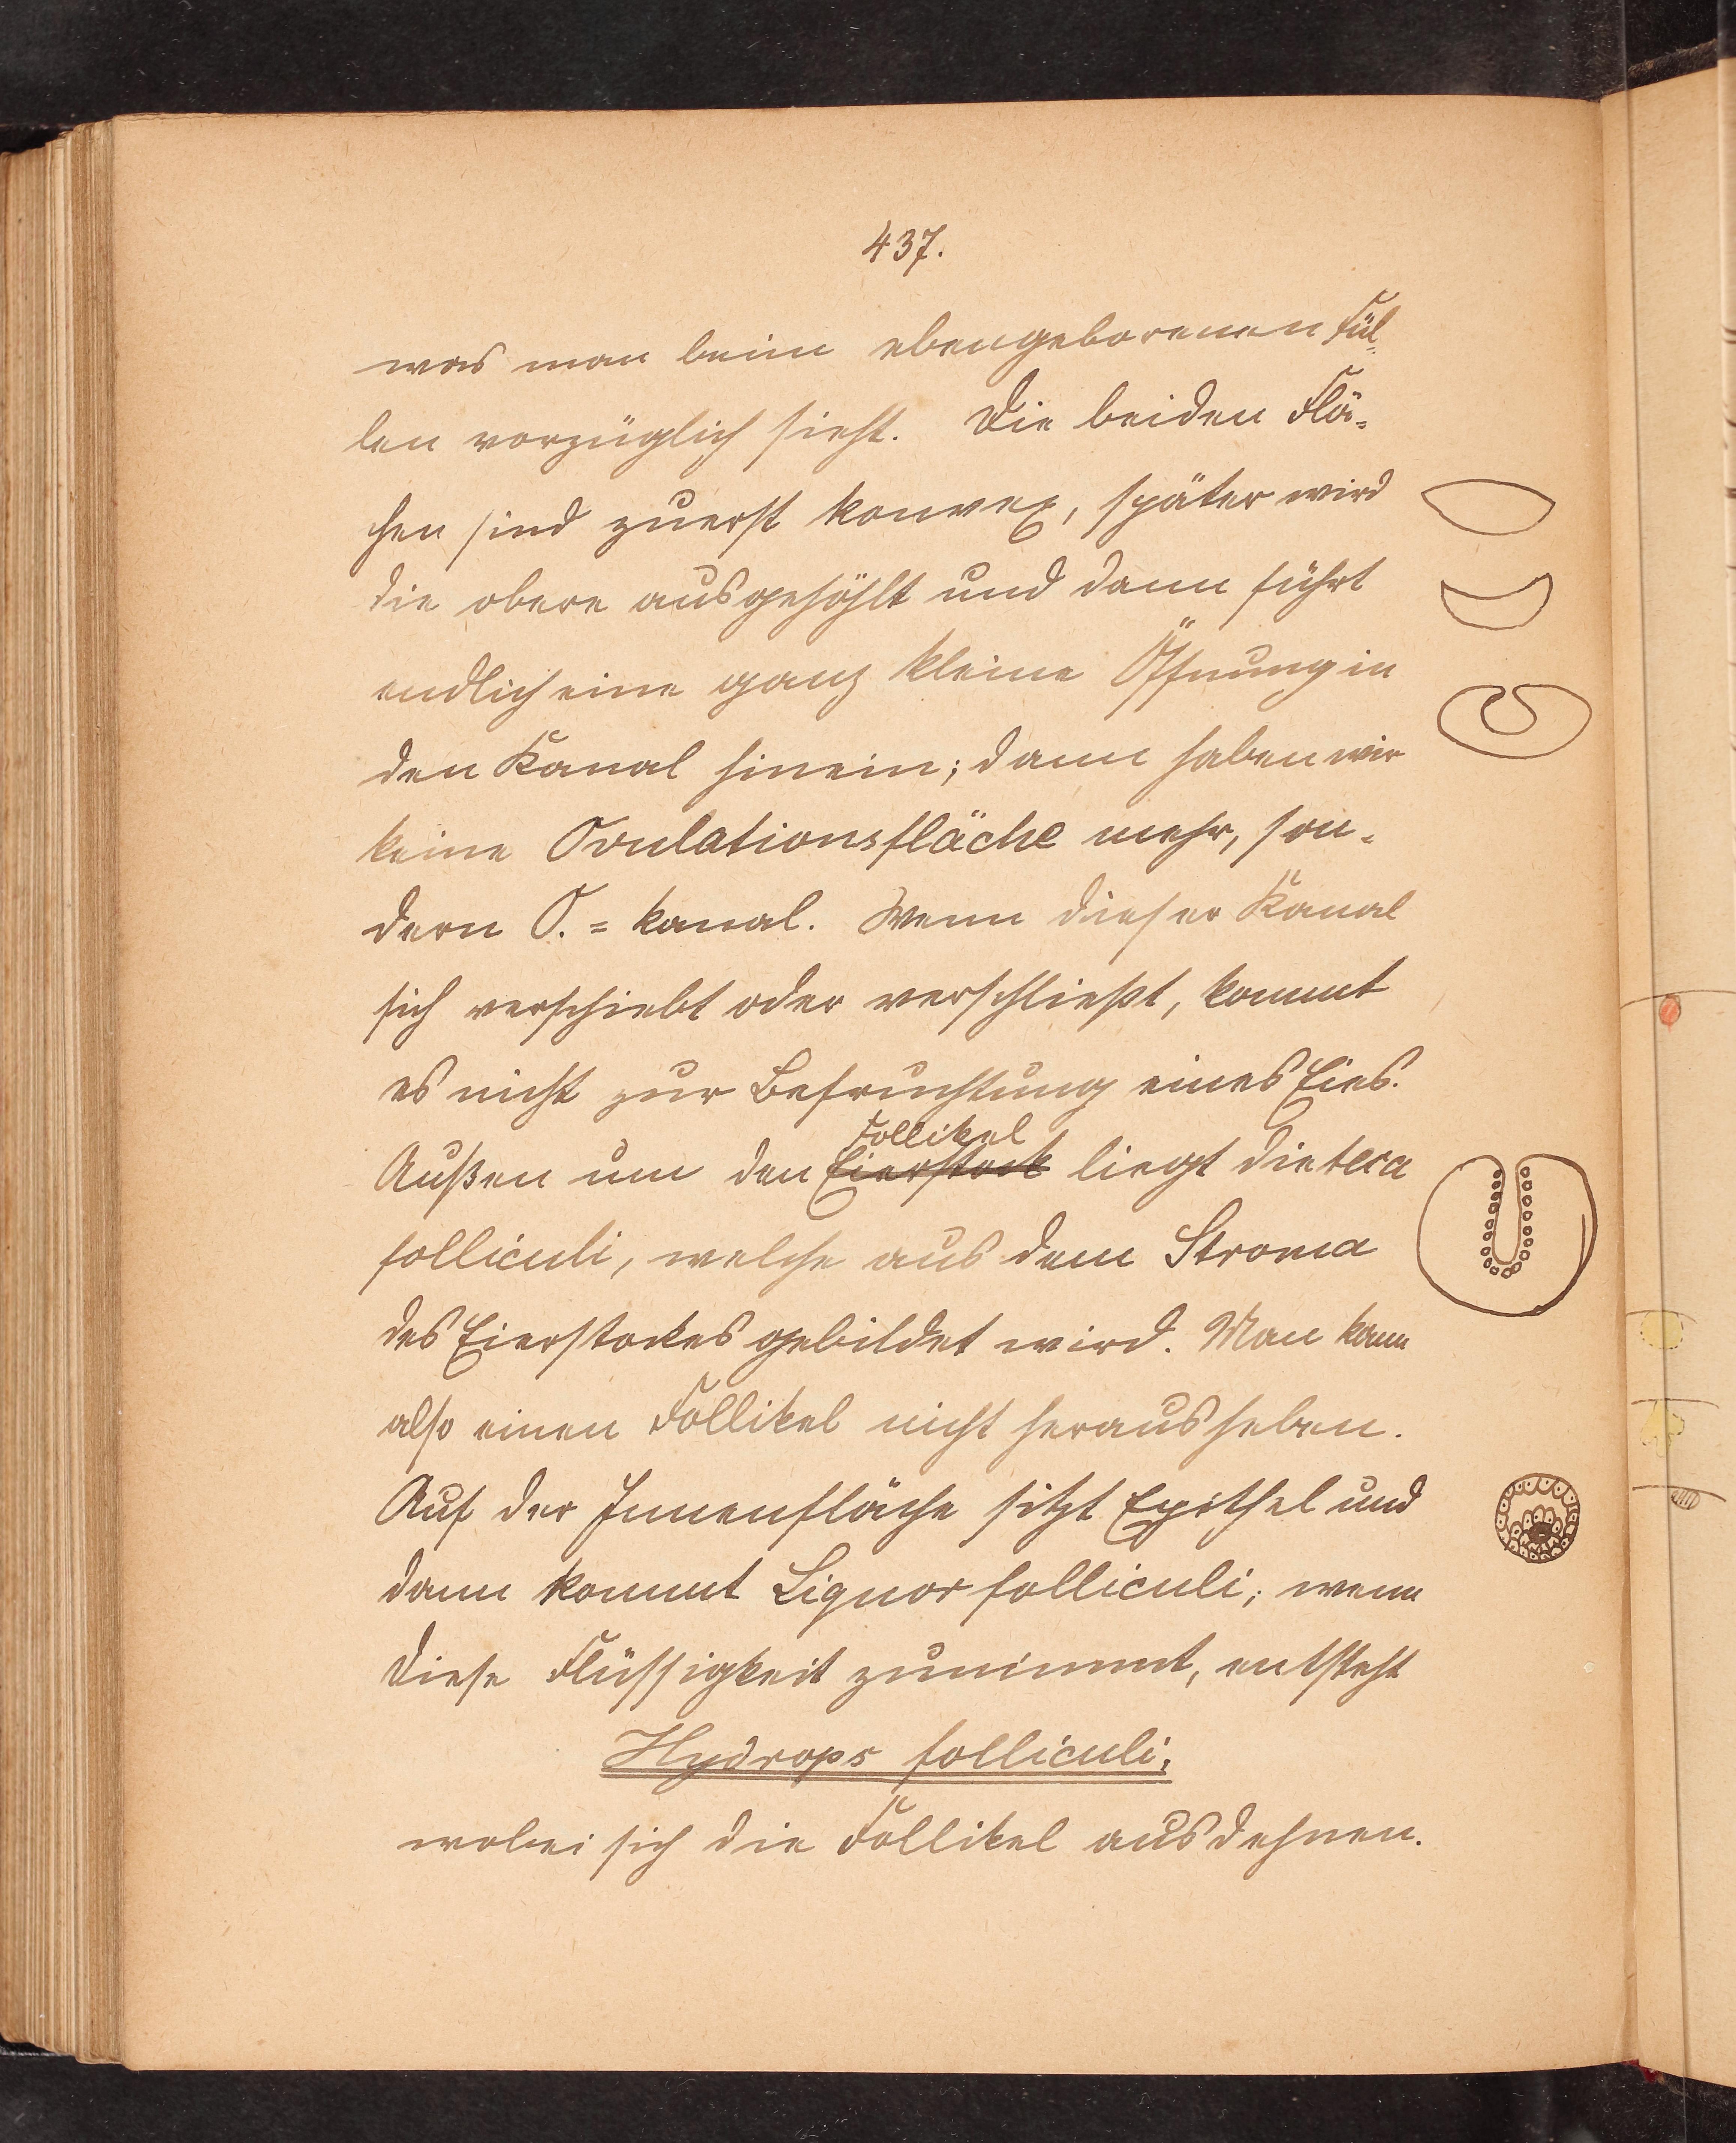 437.
was man beim ebengeborenen Fül=
len vorzüglich sieht. Die beiden Flä=
chen sind zuerst konvex, später wird
die obere ausgehöhlt und dann führt
endlich eine ganz kleine Öffnung in
den Kanal hinein; dann haben wir
keine Ovulationsfläche mehr, son=
dern O.=kanal. Wenn dieser Kanal
sich verschiebt oder verschließt, kommt
es nicht zur Befruchtung eines Eies.
Follikel
Außen um den Eierstock liegt die teca
folliculi, welche aus dem Stroma
des Eierstockes gebildet wird. Man kann
also einen Follikel nicht herausheben.
Auf der Innenfläche sitzt Epithel und
dann kommt Liquor folliculi; wenn
diese Flüssigkeit zunimmt, entsteht
Hydrops folliculi,
wobei sich die Follikel ausdehnen.